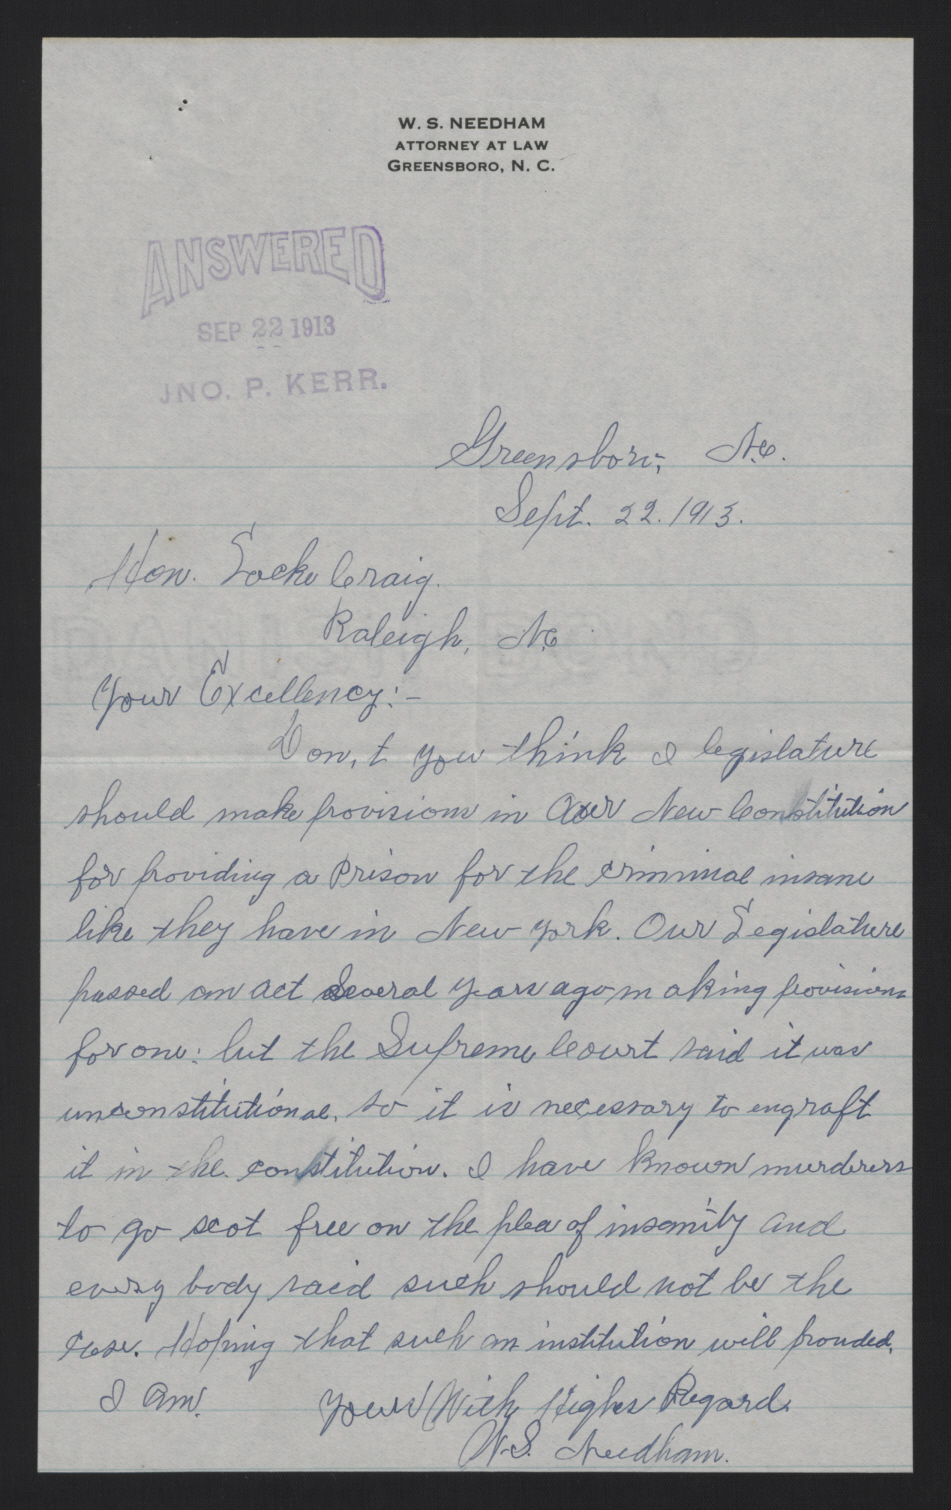 W. S. NEEDHAM
ATTORNEY AT LAW
GREENSBORO, N. C.
ANSWERED
SEP 22 1913
JNO. P. KERR.
Greensboro, N.C.
Sept. 22. 1913.
Hon. Locke Craig.
Raleigh, N.C.
Your Excellency:-
Don,t you think I legislature
should make provisions in Our New Constitution
for providing a Prison for the criminal insane
like they have in New York. Our Legislature
passed an act several years ago making provisions
for one: but the Supreme Court said it was
unconstitutional. So it is necessary to engraft
it in the constitution. I have known murderers
to go scot free on the plea of insanity and
every body said such should not be the
case. Hoping that such an institution will prouded,
I am. Your With Highes Regard.
W.S. Needham.